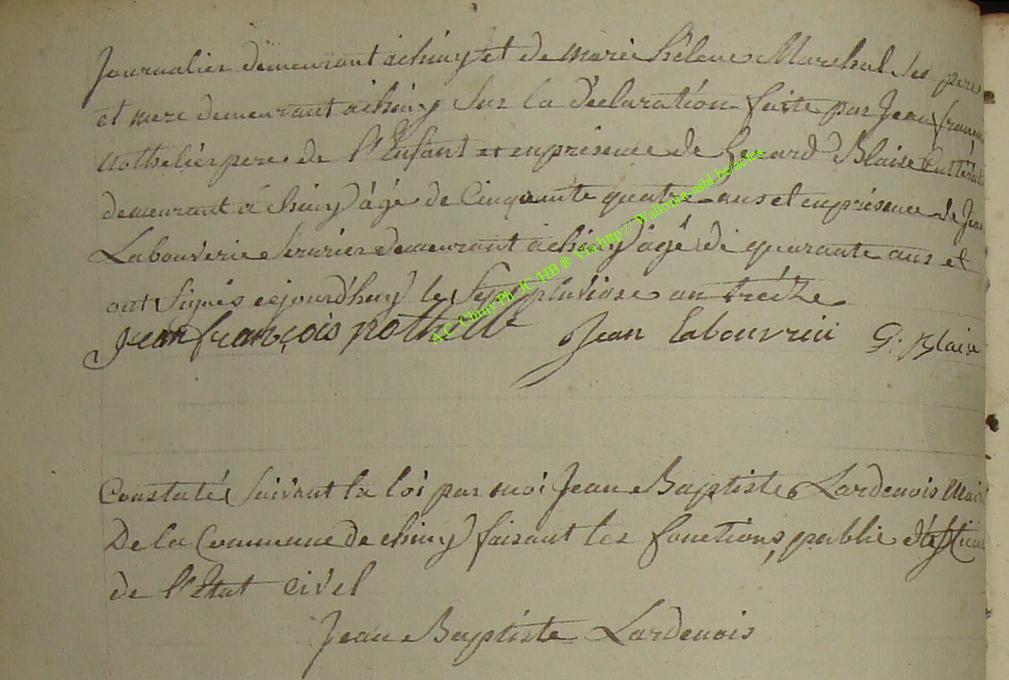 Journalier demeurant a chiny et de marie helene Marchal ses pere
et mere demeurant a chiny Sur la declaration faite par Jean francois
Nothelier pere de l'Enfant et en présence de Gerard Blaise
demeurant á chiny âgé de Cinquante quatre ans et en présence de Jean
Labouverie Serurier demeurant a chiny âgé de quarante ans et
ont Signés cejourd'huy le pluviose an treize
Jean françois nothelle Jean Labouvrie G: Blaise
Constaté Suivant la loi par moi Jean Baptiste Lardenois Maire
De la Commune de chiny faisant les fonctions public d'officier
de l'Etat civil
Jean Baptiste Lardenois
A.C. Chiny Ph. JC /HB ® Via http:// Wallonia-asbl.be/actes